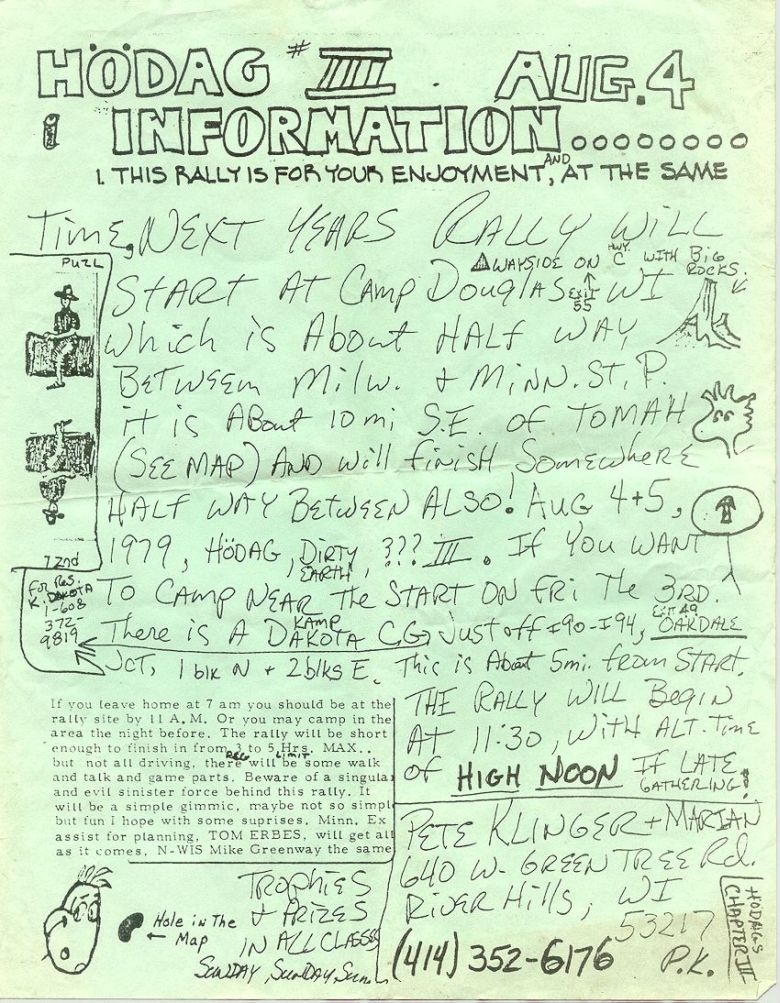 HÖDAG # IIII AUG. 4
i INFORMATION........
1. THIS RALLY IS FOR YOUR ENJOYMENT, AND AT THE SAME
TiME, NEXT YEARS RALLY WiLL
WAYSIDE ON HWY. C WITH BIG ROCKS.
START AT CAMP DOUGLAS EXIT 55 WI
which is About HALF WAY
BETWEEN Milw. + MiNN. St. P.
it is ABout 10 mi S.E. of TOMAH
(SEE MAP) AND will finish Somewhere
HALF WAY BETWEEN ALSO! AUG 4+5,
1979, HÖDAG, DIRTY EARTH, ??? III. If YOU WANT
To CAMP NEAR the START ON FRi The 3RD.
There is A KAMP DAKOTA CG Just off I90-I94, EXIT 49 OAKDALE
JCT, 1 blk N + 2 blks E. This is About 5mi. from START.
PUZL
72nd
FOR Res.
K. DAKOTA
1-608
372-
9819
If you leave home at 7 am you should be at the
rally site by 11 A.M. Or you may camp in the
area the night before. The rally will be short
enough to finish in from 3 to 5 Hrs. MAX..
but not all driving, there will be some walk
and talk and game parts. Beware of a singula
and evil sinister force behind this rally. It
will be a simple gimmic, maybe not so simpl
but fun I hope with some suprises. Minn. Ex
assist for planning, TOM ERBES, will get all
as it comes, N-WIS Mike Greenway the same
REG LIMIT
THE RALLY WILL BEGIN
AT 11:30, WITH ALT. Time
of HIGH NOON If LATE
GATHERING!
PETE KLINGER + MARIAN
640 W. GREEN TREE Rd.
RIVER HILLS, WI
53217
(414) 352-6176 P.K.
HÖDAGS
CHAPTER III
TROPHiES
+ PRIZES
IN ALL CLASSES
SUNDAY, SUNDAY,
Hole in The
← Map